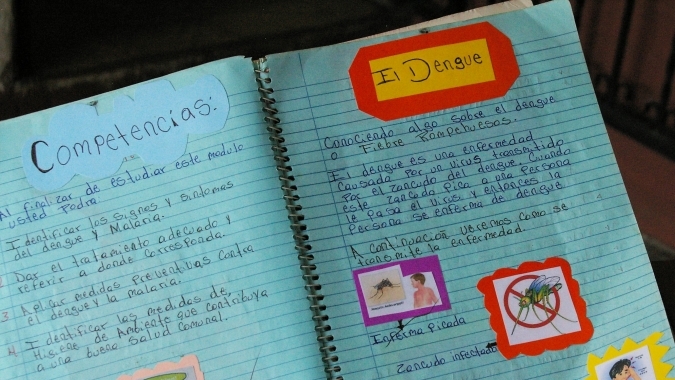 Competencias:
Al finalizar de estudiar este modulo
usted Podra
Identificar los signos y sintomas
del dengue y Malaria.
2 Dar el tratamiento adecuado y
referir a donde corresponda.
3 Aplicar medidas Preventibas contra
el dengue y la malaria.
4 Identificar las medidas de,
Higiene de Ambiente que contribuya
a una buena Salud Comunal.
El Dengue
Conociendo algo sobre el dengue
o Fiebre Rompehuesos.
El dengue es una enfermedad
causada Por un virus transmitido
Por el zancudo del dengue. Cuando
este zancudo Pica a una Persona
le Pasa el virus y entonces la
Persona se enferma de dengue
A continuación veremos como se
transmite la enfermedad.
Enferma Picada
Zancudo infectado